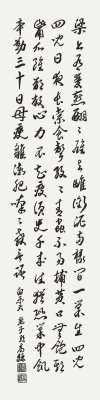 梁上有雙燕翩翩雄與雌銜泥兩椽間一巢生四兒
四兒日夜長索食聲孜孜青蟲不易捕黃口無飽期
觜爪雖欲敝心力不知疲須臾千來往猶恐巢中飢
辛勤三十日母瘦雛漸肥喃喃教言語